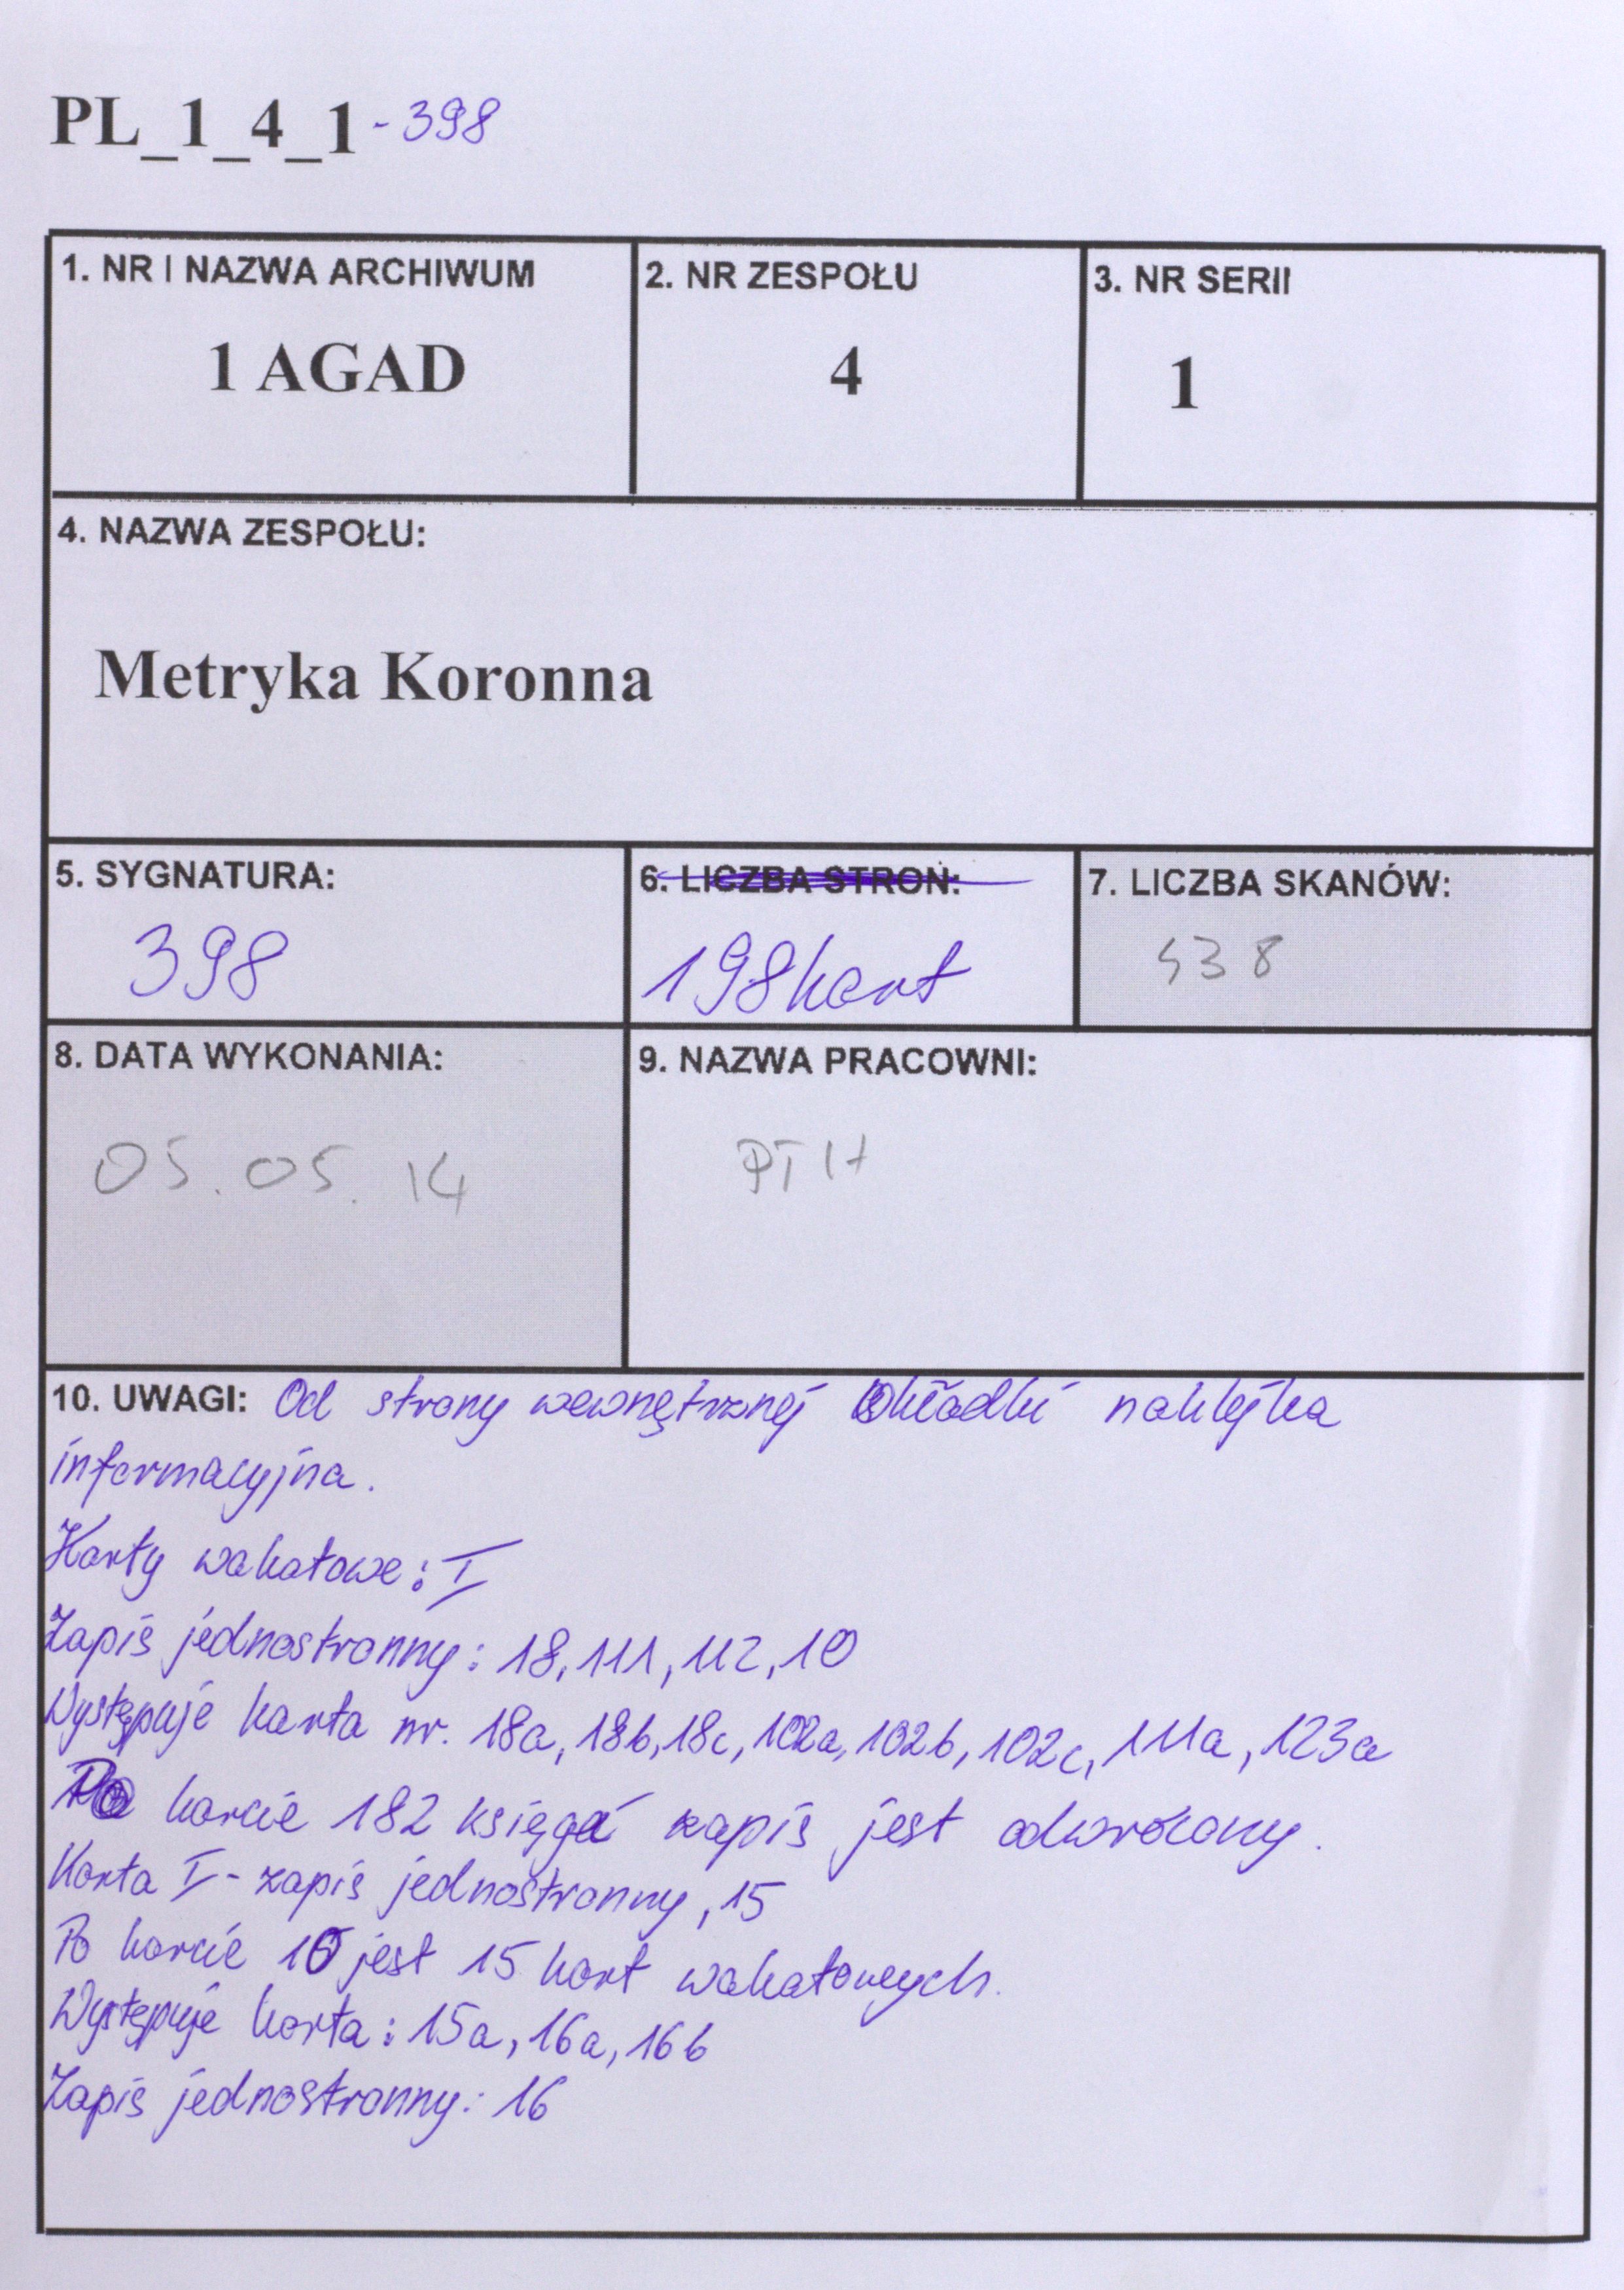 PL_1_4_1 - 398
1. NR I NAZWA ARCHIWUM
1 AGAD
2. NR ZESPOŁU
4
3. NR SERII
1
4. NAZWA ZESPOŁU:
Metryka Koronna
5. SYGNATURA:
398
6. LICZBA STRON:
198 kart
7. LICZBA SKANÓW:
438
8. DATA WYKONANIA:
05.05.14
9. NAZWA PRACOWNI:
PTH
10. UWAGI: Od strony wewnętrznej okładki naklejka
informacyjna.
Karty wakatowe: I
Zapis jednostronny: 18, 111, 112, 10
Występuje karta nr. 18a, 18b, 18c, 102a, 102b, 102c, 111a, 123a
Po karcie 182 księga zapis jest odwrócony.
Karta I - zapis jednostronny, 15
Po karcie jest 15 kart wakatowych.
Występuje karta: 15a, 16a, 16b
Zapis jednostronny: 16